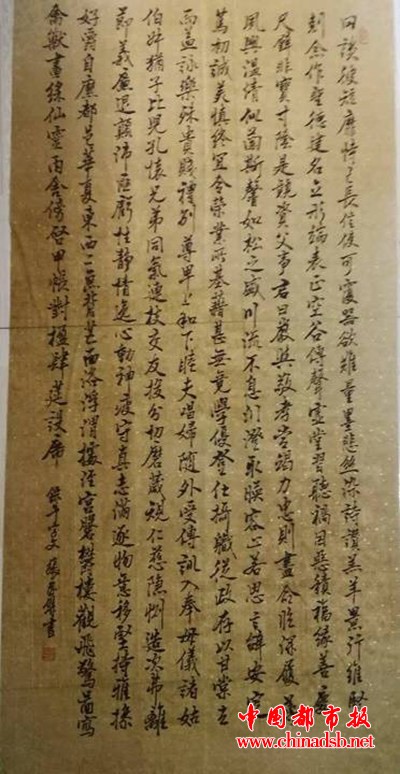 罔談彼短靡恃己長信使可覆器欲難量墨悲絲染詩讚羔羊景行維賢
剋念作聖德建名立形端表正空谷傳聲虛堂習聽禍因惡積福緣善慶
尺璧非寶寸陰是競資父事君曰嚴與敬孝當竭力忠則盡命臨深履薄
夙興溫凊似蘭斯馨如松之盛川流不息淵澄取暎容止若思言辭安定
篤初誠美慎終宜令榮業所基藉甚無竟學優登仕攝職從政存以甘棠去
而益詠樂殊貴賤禮別尊卑上和下睦夫唱婦隨外受傅訓入奉母儀諸姑
伯叔猶子比兒孔懷兄弟同氣連枝交友投分切磨箴規仁慈隱惻造次弗離
節義廉退顛沛匪虧性靜情逸心動神疲守真志滿逐物意移堅持雅操
好爵自縻都邑華夏東西二京背芒面洛浮渭據涇宮殿盤鬱樓觀飛驚圖寫
禽獸畫綵仙靈丙舍傍啓甲帳對楹肆筵設席
錄千字文 書
中国都市报
www.chinadsb.net